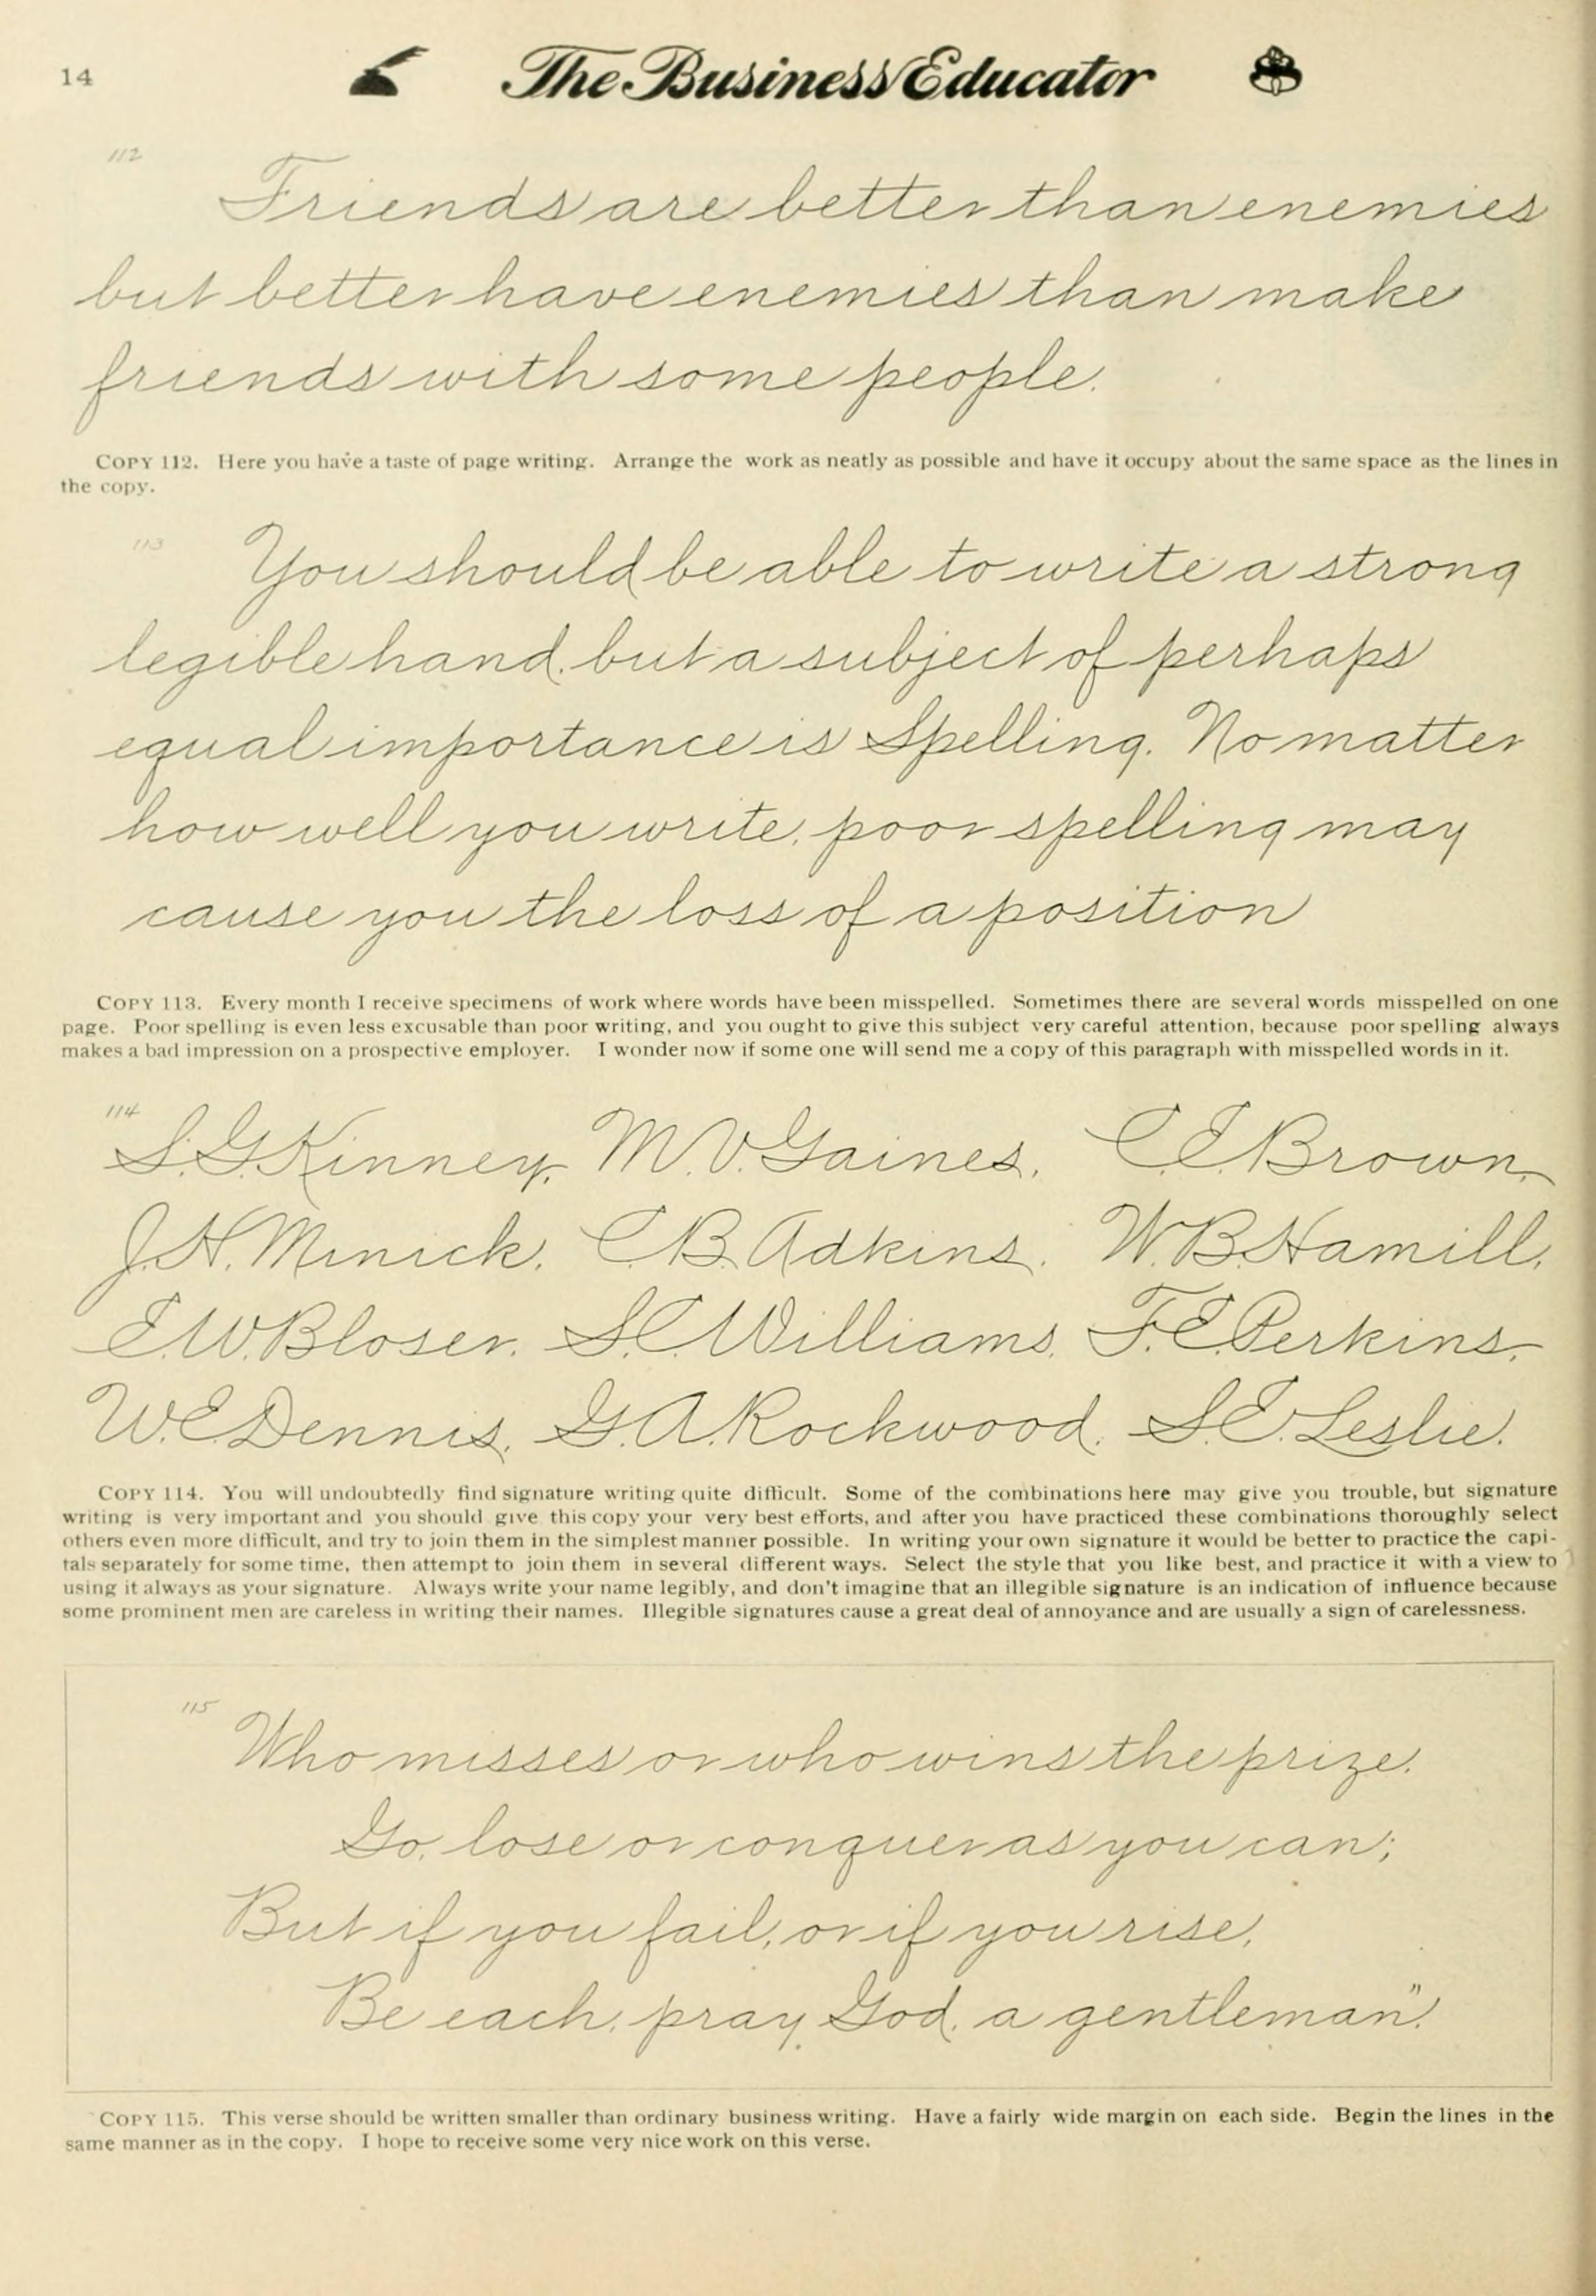 14
The Business Educator
112
Friends are better than enemies
but better have enemies than make
friends with some people.
COPY 112. Here you have a taste of page writing. Arrange the work as neatly as possible and have it occupy about the same space as the lines in
the copy.
113
You should be able to write a strong
legible hand, but a subject of perhaps
equal importance is Spelling. No matter
how well you write, poor spelling may
cause you the loss of a position
COPY 113. Every month I receive specimens of work where words have been misspelled. Sometimes there are several words misspelled on one
page. Poor spelling is even less excusable than poor writing, and you ought to give this subject very careful attention, because poor spelling always
makes a bad impression on a prospective employer. I wonder now if some one will send me a copy of this paragraph with misspelled words in it.
114
S. G. Kinney, M. V. Gaines, C. E. Brown,
J. H. Minick, C. B. Adkins, W. B. Hamill,
E. W. Bloser, S. C. Williams, F. E. Perkins,
W. E. Dennis, G. A. Rockwood, S. E. Leslie.
COPY 114. You will undoubtedly find signature writing quite difficult. Some of the combinations here may give you trouble, but signature
writing is very important and you should give this copy your very best efforts, and after you have practiced these combinations thoroughly select
others even more difficult, and try to join them in the simplest manner possible. In writing your own signature it would be better to practice the capi-
tals separately for some time, then attempt to join them in several different ways. Select the style that you like best, and practice it with a view to
using it always as your signature. Always write your name legibly, and don't imagine that an illegible signature is an indication of influence because
some prominent men are careless in writing their names. Illegible signatures cause a great deal of annoyance and are usually a sign of carelessness.
115
Who misses or who wins the prize.
Go, lose or conquer as you can;
But if you fail, or if you rise,
Be each, pray God, a gentleman."
COPY 115. This verse should be written smaller than ordinary business writing. Have a fairly wide margin on each side. Begin the lines in the
same manner as in the copy. I hope to receive some very nice work on this verse.